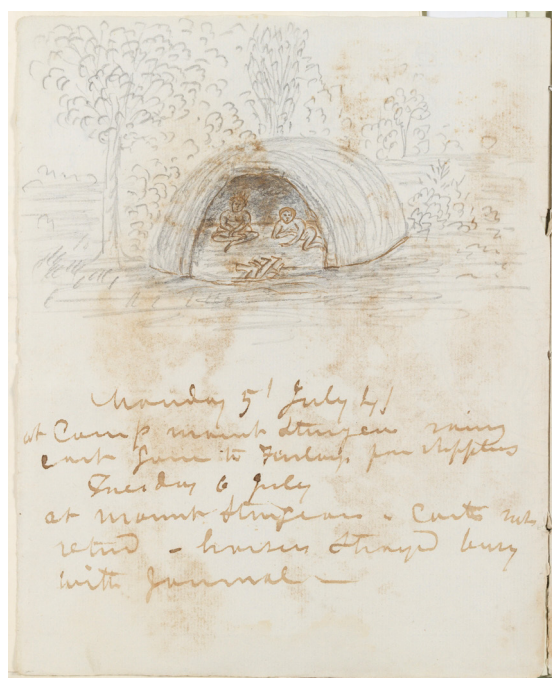 Monday 5' July 41
at Camp mount Sturgeon rainy
cart gone to for supplies
Tuesday 6 July
at mount Sturgeon - Carts not
retnd - horses strayd busy
with Journal —